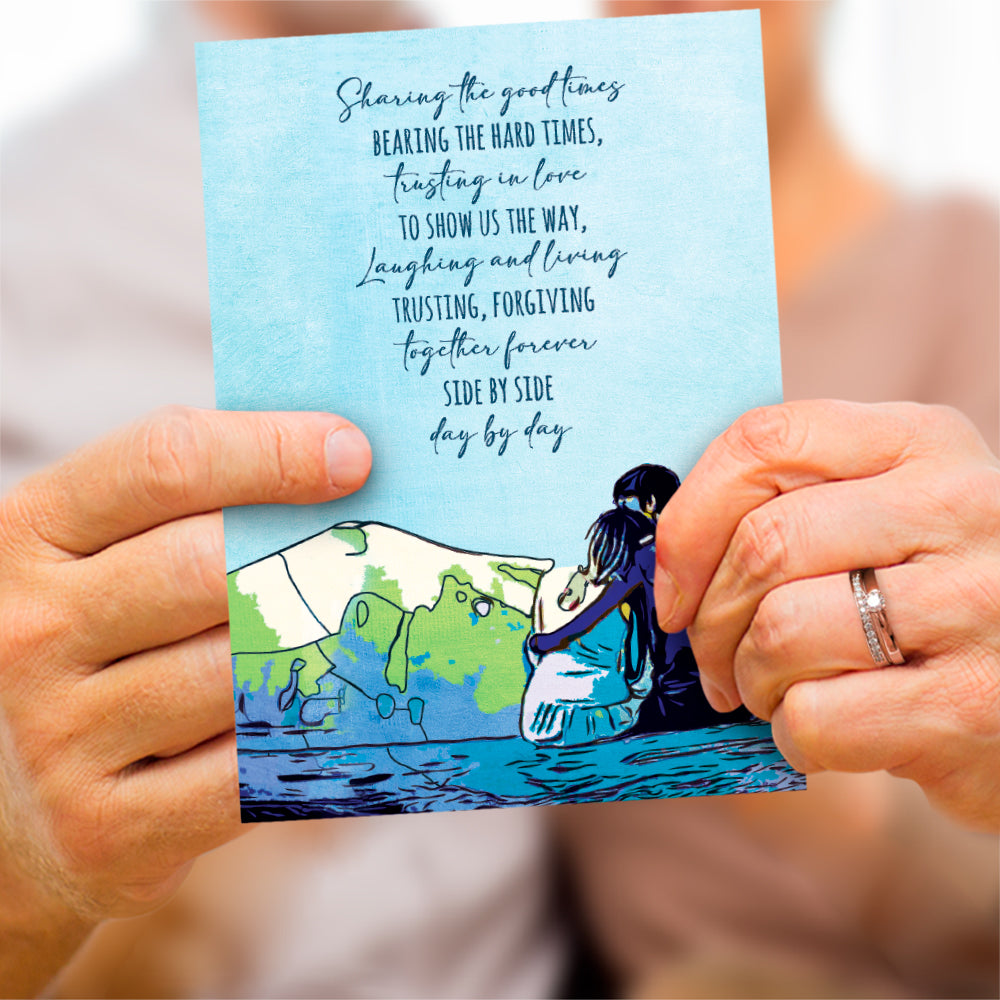 Sharing the good times
BEARING THE HARD TIMES,
trusting in love
TO SHOW US THE WAY,
Laughing and living
TRUSTING, FORGIVING
together forever
SIDE BY SIDE
day by day